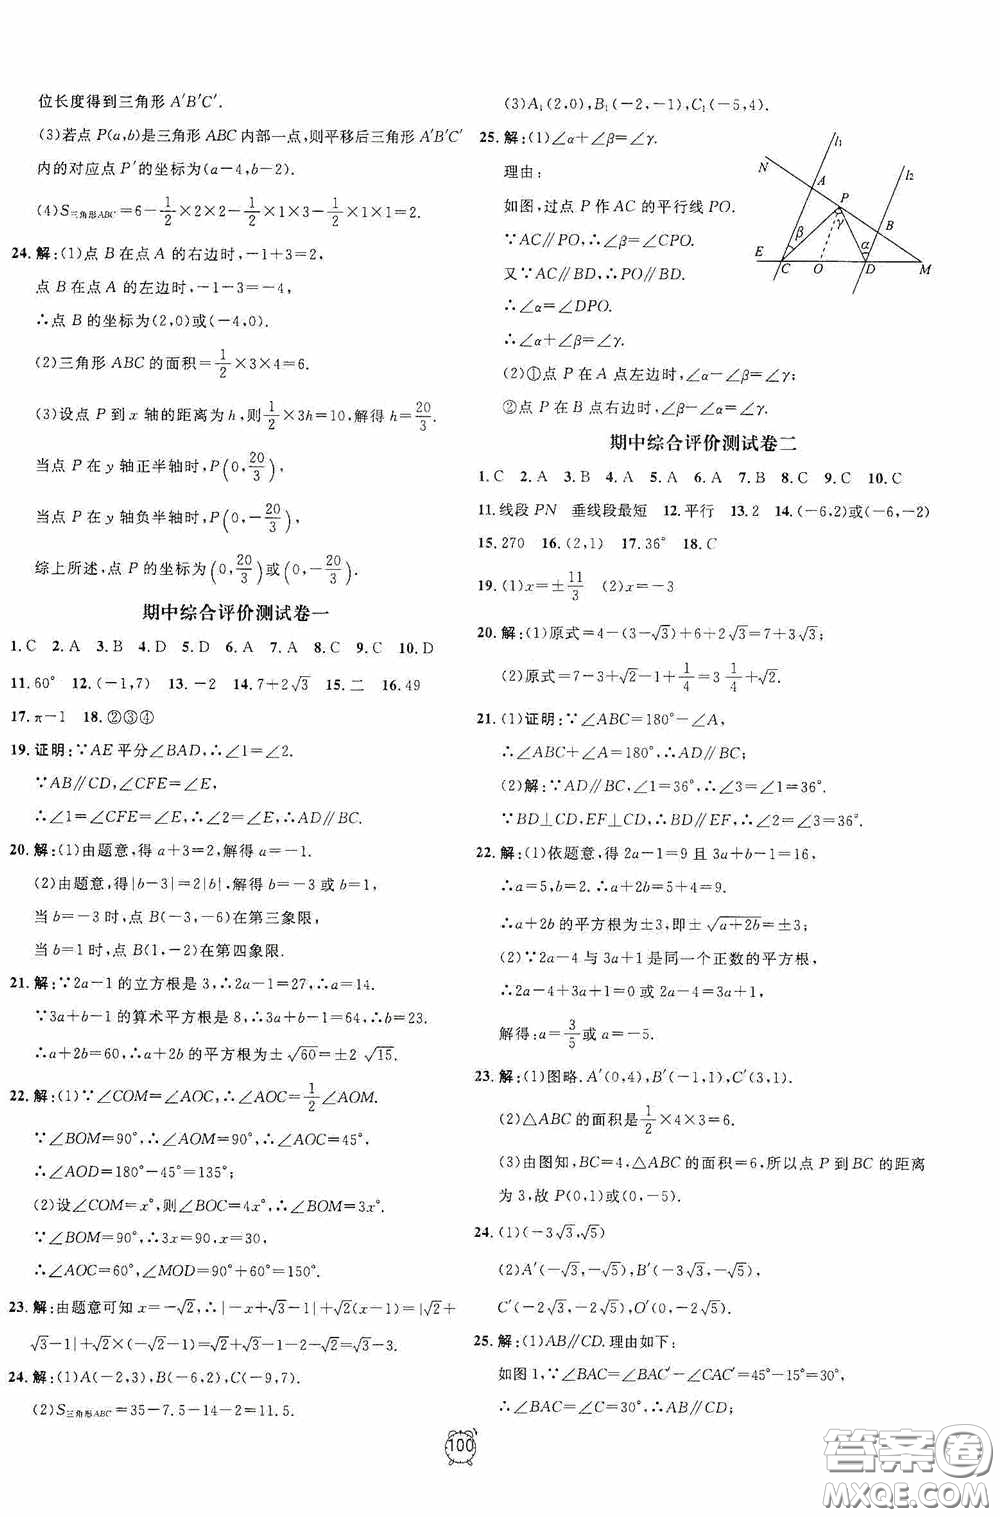 位长度得到三角形 A′B′C′.
(3)若点 P(a,b)是三角形 ABC 内部一点,则平移后三角形 A′B′C′
内的对应点 P′的坐标为(a-4,b-2).
(4)S三角形ABC=6-1/2×2×2-1/2×1×3-1/2×1×1=2.
24.解:(1)点 B 在点 A 的右边时,-1+3=2,
点 B 在点 A 的左边时,-1-3=-4,
∴点 B 的坐标为(2,0)或(-4,0).
(2)三角形 ABC 的面积=1/2×3×4=6.
(3)设点 P 到 x 轴的距离为 h,则1/2×3h=10,解得 h=20/3.
当点 P 在 y 轴正半轴时,P(0,20/3),
当点 P 在 y 轴负半轴时,P(0,-20/3),
综上所述,点 P 的坐标为(0,20/3)或(0,-20/3).
期中综合评价测试卷一
1.C 2.A 3.B 4.D 5.D 6.A 7.A 8.C 9.C 10.D
11.60° 12.(-1,7) 13.-2 14.7+2√3 15.二 16.49
17.π-1 18.②③④
19.证明:∵AE 平分∠BAD,∴∠1=∠2.
∵AB∥CD,∠CFE=∠E,
∴∠1=∠CFE=∠E,∴∠2=∠E,∴AD∥BC.
20.解:(1)由题意,得 a+3=2,解得 a=-1.
(2)由题意,得|b-3|=2|b|,解得 b=-3 或 1,
当 b=-3 时,点 B(-3,-6)在第三象限,
当 b=1 时,点 B(1,-2)在第四象限.
21.解:∵2a-1 的立方根是 3,∴2a-1=27,∴a=14.
∵3a+b-1 的算术平方根是 8,∴3a+b-1=64,∴b=23.
∴a+2b=60,∴a+2b 的平方根为±√60=±2√15.
22.解:(1)∵∠COM=∠AOC,∴∠AOC=1/2∠AOM.
∵∠BOM=90°,∴∠AOM=90°,∴∠AOC=45°,
∴∠AOD=180°-45°=135°;
(2)设∠COM=x°,则∠BOC=4x°,∴∠BOM=3x°,
∵∠BOM=90°,∴3x=90,x=30,
∴∠AOC=60°,∠MOD=90°+60°=150°.
23.解:由题意可知 x=-√2,∴|-x+√3-1|+√2(x-1)=|√2+
√3-1|+√2×(-√2-1)=√2+√3-1-2-√2=√3-3.
24.解:(1)A(-2,3),B(-6,2),C(-9,7).
(2)S三角形ABC=35-7.5-14-2=11.5.
(3)A₁(2,0),B₁(-2,-1),C₁(-5,4).
25.解:(1)∠α+∠β=∠γ.
理由:
如图,过点 P 作 AC 的平行线 PO.
∵AC∥PO,∴∠β=∠CPO.
又∵AC∥BD,∴PO∥BD,
∴∠α=∠DPO.
∴∠α+∠β=∠γ.
(2)①点 P 在 A 点左边时,∠α-∠β=∠γ;
②点 P 在 B 点右边时,∠β-∠α=∠γ.
N A l₁ P l₂ B
β γ α
E C O D M
期中综合评价测试卷二
1.C 2.A 3.B 4.A 5.A 6.A 7.B 8.C 9.C 10.C
11.线段 PN 垂线段最短 12.平行 13.2 14.(-6,2)或(-6,-2)
15.270 16.(2,1) 17.36° 18.C
19.(1)x=±11/3 (2)x=-3
20.解:(1)原式=4-(3-√3)+6+2√3=7+3√3;
(2)原式=7-3+√2-1+1/4=3 1/4+√2.
21.(1)证明:∵∠ABC=180°-∠A,
∴∠ABC+∠A=180°,∴AD∥BC;
(2)解:∵AD∥BC,∠1=36°,∴∠3=∠1=36°,
∵BD⊥CD,EF⊥CD,∴BD∥EF,∴∠2=∠3=36°.
22.解:(1)依题意,得 2a-1=9 且 3a+b-1=16,
∴a=5,b=2.
∴a+2b 的平方根为±3,即±√a+2b=±3;
(2)∵2a-4 与 3a+1 是同一个正数的平方根,
∴2a-4+3a+1=0 或 2a-4=3a+1,
解得:a=3/5或 a=-5.
23.解:(1)图略. A′(0,4),B′(-1,1),C′(3,1).
(2)△ABC 的面积是1/2×4×3=6.
(3)由图知,BC=4,△ABC 的面积=6,所以点 P 到 BC 的距离
为 3,故 P(0,1)或(0,-5).
24.(1)(-3√3,√5)
(2)A′(-√3,-√5),B′(-3√3,-√5),
C′(-2√3,-2√5),O′(0,-2√5).
25.解:(1)AB∥CD. 理由如下:
如图 1,∵∠BAC=∠BAC′-∠CAC′=45°-15°=30°,
∴∠BAC=∠C=30°,∴AB∥CD;
100
答案圈
MXQE.COM